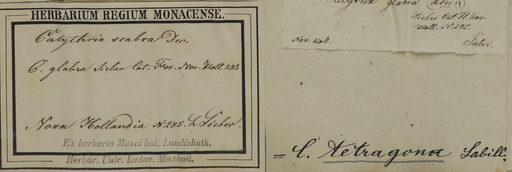 HERBARIUM REGIUM MONACENSE.
Calythrix scabra Dec.
C. glabra Sieber Cat. Fl. Nov. Holl. 285
Nova Hollandia N. 285. h. Sieber.
Ex herbario Musei bot. Landishuth.
Herbar. Univ. Ludov. Maximil.
glabra
Sieber Cat. Fl. Nov.
Holl. N. 285.
Nov. Holl. Sieber.
= C. tetragona Labill.